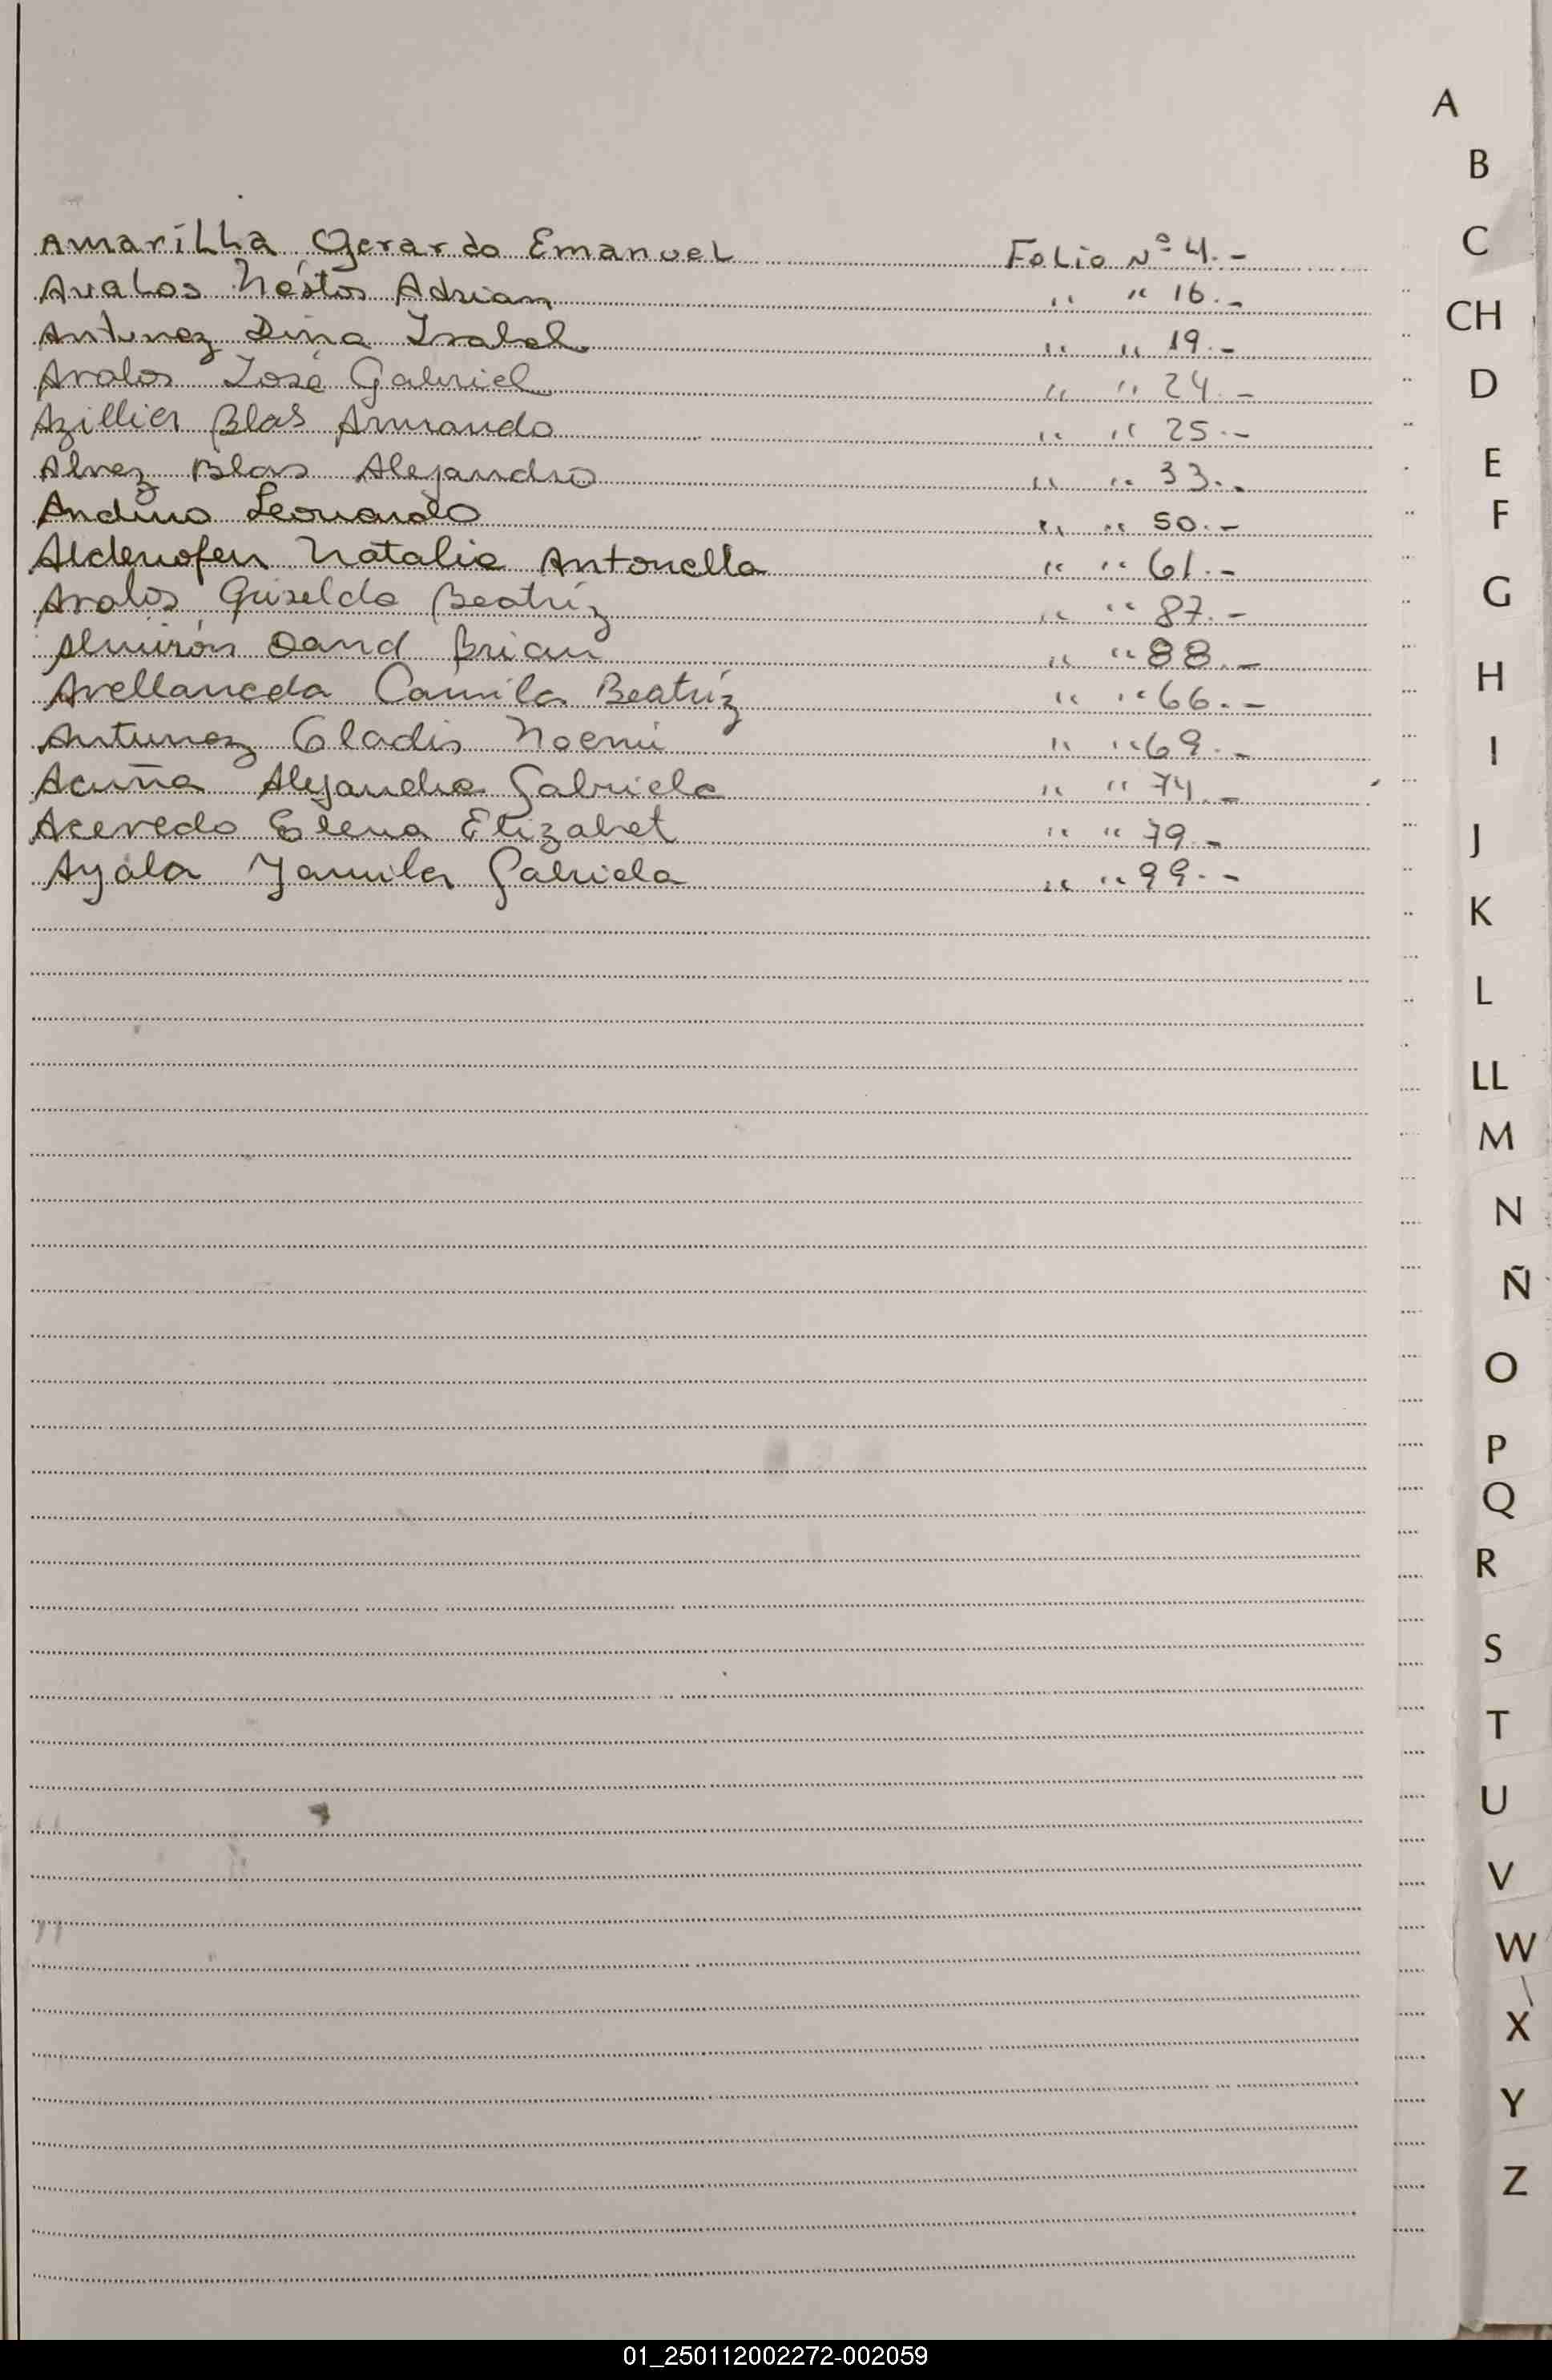 A
B
C
CH
D
E
F
G
H
I
J
K
L
LL
M
N
Ñ
O
P
Q
R
S
T
U
V
W
X
Y
Z
Amarilla Gerardo Emanuel Folio Nº 4.-
Avalos Néstor Adrian " " 16.-
Antunez Dina Isabel " " 19.-
Avalos José Gabriel " " 24.-
Azillier Blas Armando " " 25.-
Alvez Blas Alejandro " " 33.-
Andino Leonardo " " 50.-
Aldenofen Natalia Antonella " " 61.-
Avalos Griselda Beatríz " " 87.-
Almirón David Brian " " 88.-
Avellaneda Camila Beatríz " " 66.-
Antunez Gladis Noemí " " 69.-
Acuña Alejandra Gabriela " " 74.-
Acevedo Elena Elizabet " " 79.-
Ayala Yamila Gabriela " " 99.-
01_250112002272-002059